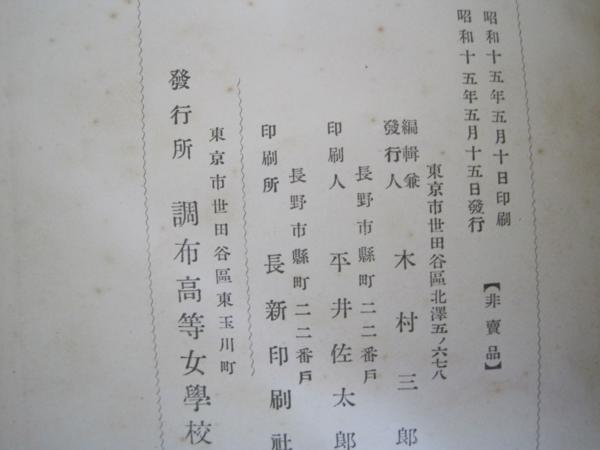 昭和十五年五月十日印刷
昭和十五年五月十五日發行
【非賣品】
東京市世田谷區北澤五ノ六七八
編輯兼
發行人 木村三郎
長野市縣町二二番戶
印刷人 平井佐太郎
長野市縣町二二番戶
印刷所 長新印刷社
東京市世田谷區東玉川町
發行所 調布高等女學校